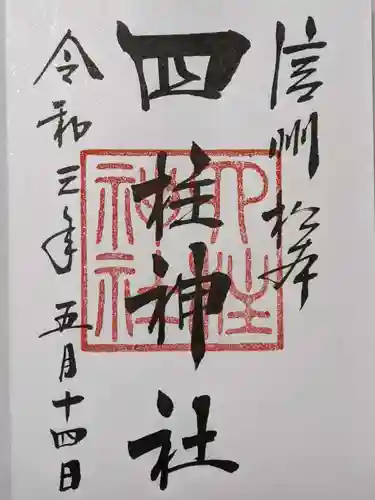 信州松本
四柱神社
令和三年五月十四日
四柱神社